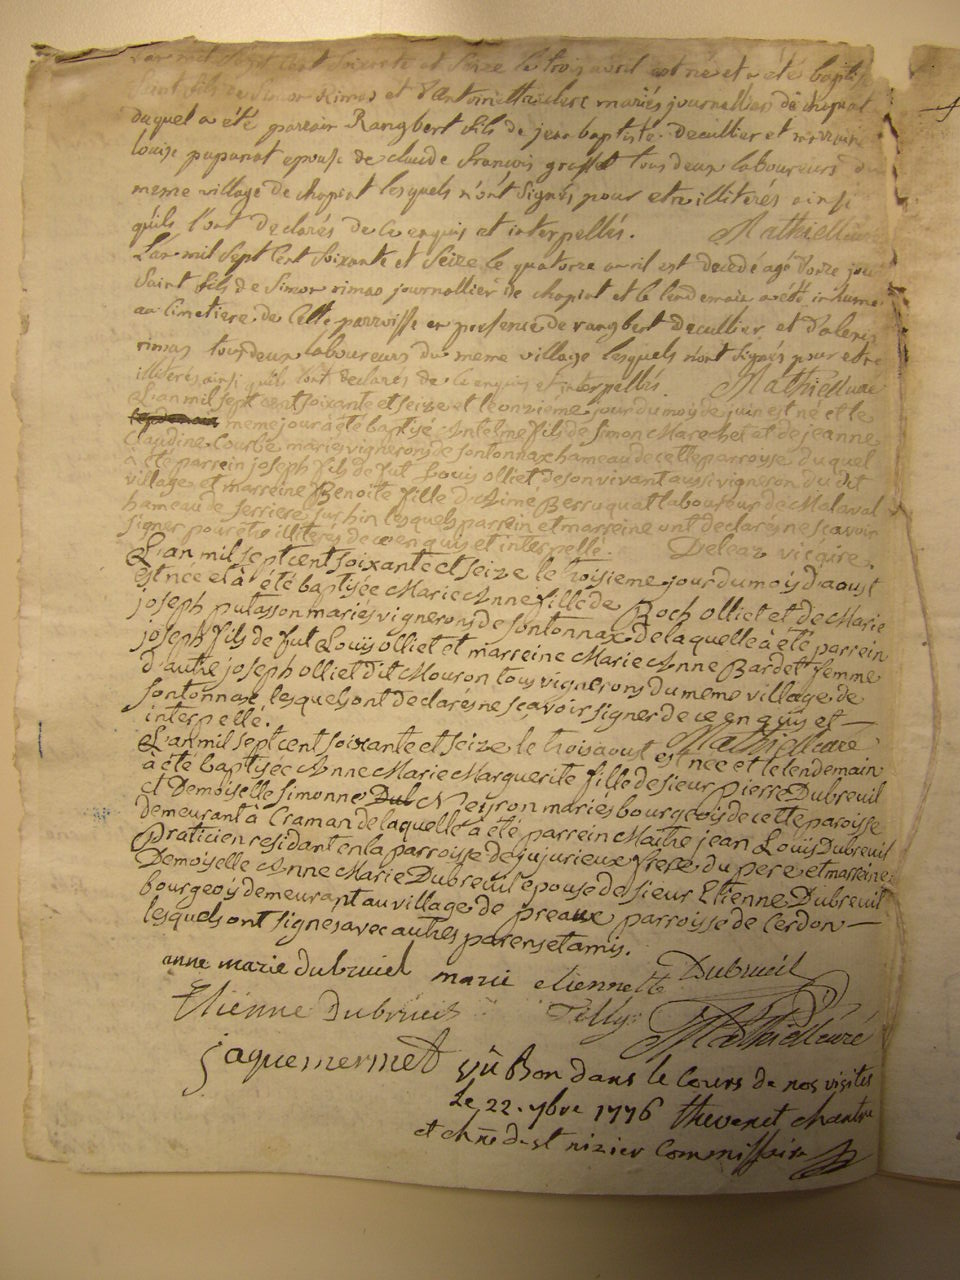 L'an mil sept cent soixante et seize le trois avril est né et a été baptisé
Saint fils de Simon Rimas et d'antoinette mariés journalliers de chopiat
duquel a été parrain Rangbert fils de jean baptiste decullier et marraine
louise papanat epouse de claude françois tous deux laboureurs du
meme village de chopiat lesquels n'ont signés pour etre illiterés ainsi
qu'ils l'ont declarés de ce enquis et interpellés. Mathieu curé
L'an mil sept cent soixante et seize le quatorze avril est decedé agé d'onze jours
Saint fils de Simon rimas journallier de chopiat et le lendemain a été inhumé
au cimetiere de cette parroisse en presence de rangbert decullier et d'alexis
rimas tous deux laboureurs du meme village lesquels n'ont signés pour etre
illiterés ainsi qu'ils l'ont declarés de ce enquis et interpellés. Mathieu curé
L'an mil sept cent soixante et seize et le onzieme jour du moy de juin est né et le
meme jour à été baptisé Antelme fils de Simon Marechet et de jeanne
Claudine Courbe mariés vignerons de fontonnax hameau de cette parroisse duquel
à été parrein joseph fils de fut Louis olliet de son vivant aussi vigneron du dit
village et marreine Benoite fille d'Aime Berruquat laboureur de Malaval
hameau de Serrieres sur hin lesquels parrein et marreine ont declarés ne scavoir
signer pour etre illiterés de ce enquis et interpellé. Deleaz vicaire.
L'an mil sept cent soixante et seize le troisieme jour du moys d'aoust
est née et à été baptisée Marie Anne fille de Roch olliet et de Marie
joseph putasson mariés vignerons de fontonnax de laquelle à été parrein
joseph fils de fut Louis olliet et marreine Marie Anne Bardet femme
d'autre joseph olliet dit Mouron tous vignerons du meme village de
fontonnax lesquels ont declarés ne scavoir signer de ce enquis et —
interpellé. Mathieu curé
L'an mil sept cent soixante et seize le trois aoust est née et le lendemain
à été baptisée Anne Marie Marguerite fille de sieur pierre Dubreuil
et Demoiselle Simonne Dub Neyron mariés bourgeois de cette paroisse
demeurant à Craman de laquelle à été parrein Maitre jean Louis Dubreuil
praticien residant en la parroisse de jujurieux frere du pere et marreine
Demoiselle Anne Marie Dubreuil epouse de sieur Etienne Dubreuil
bourgeois demeurant au village de preaux parroisse de Cerdon —
lesquels ont signes avec autres parens et amis.
anne marie dubruiel marie etiennette Dubrueil
Etienne Dubrueil Tilly Mathieu curé
jaquemermet Vû Bon dans le cours de nos visites
Le 22. 7bre 1776 thevenet chantre
et chne de st nizier Commissaire